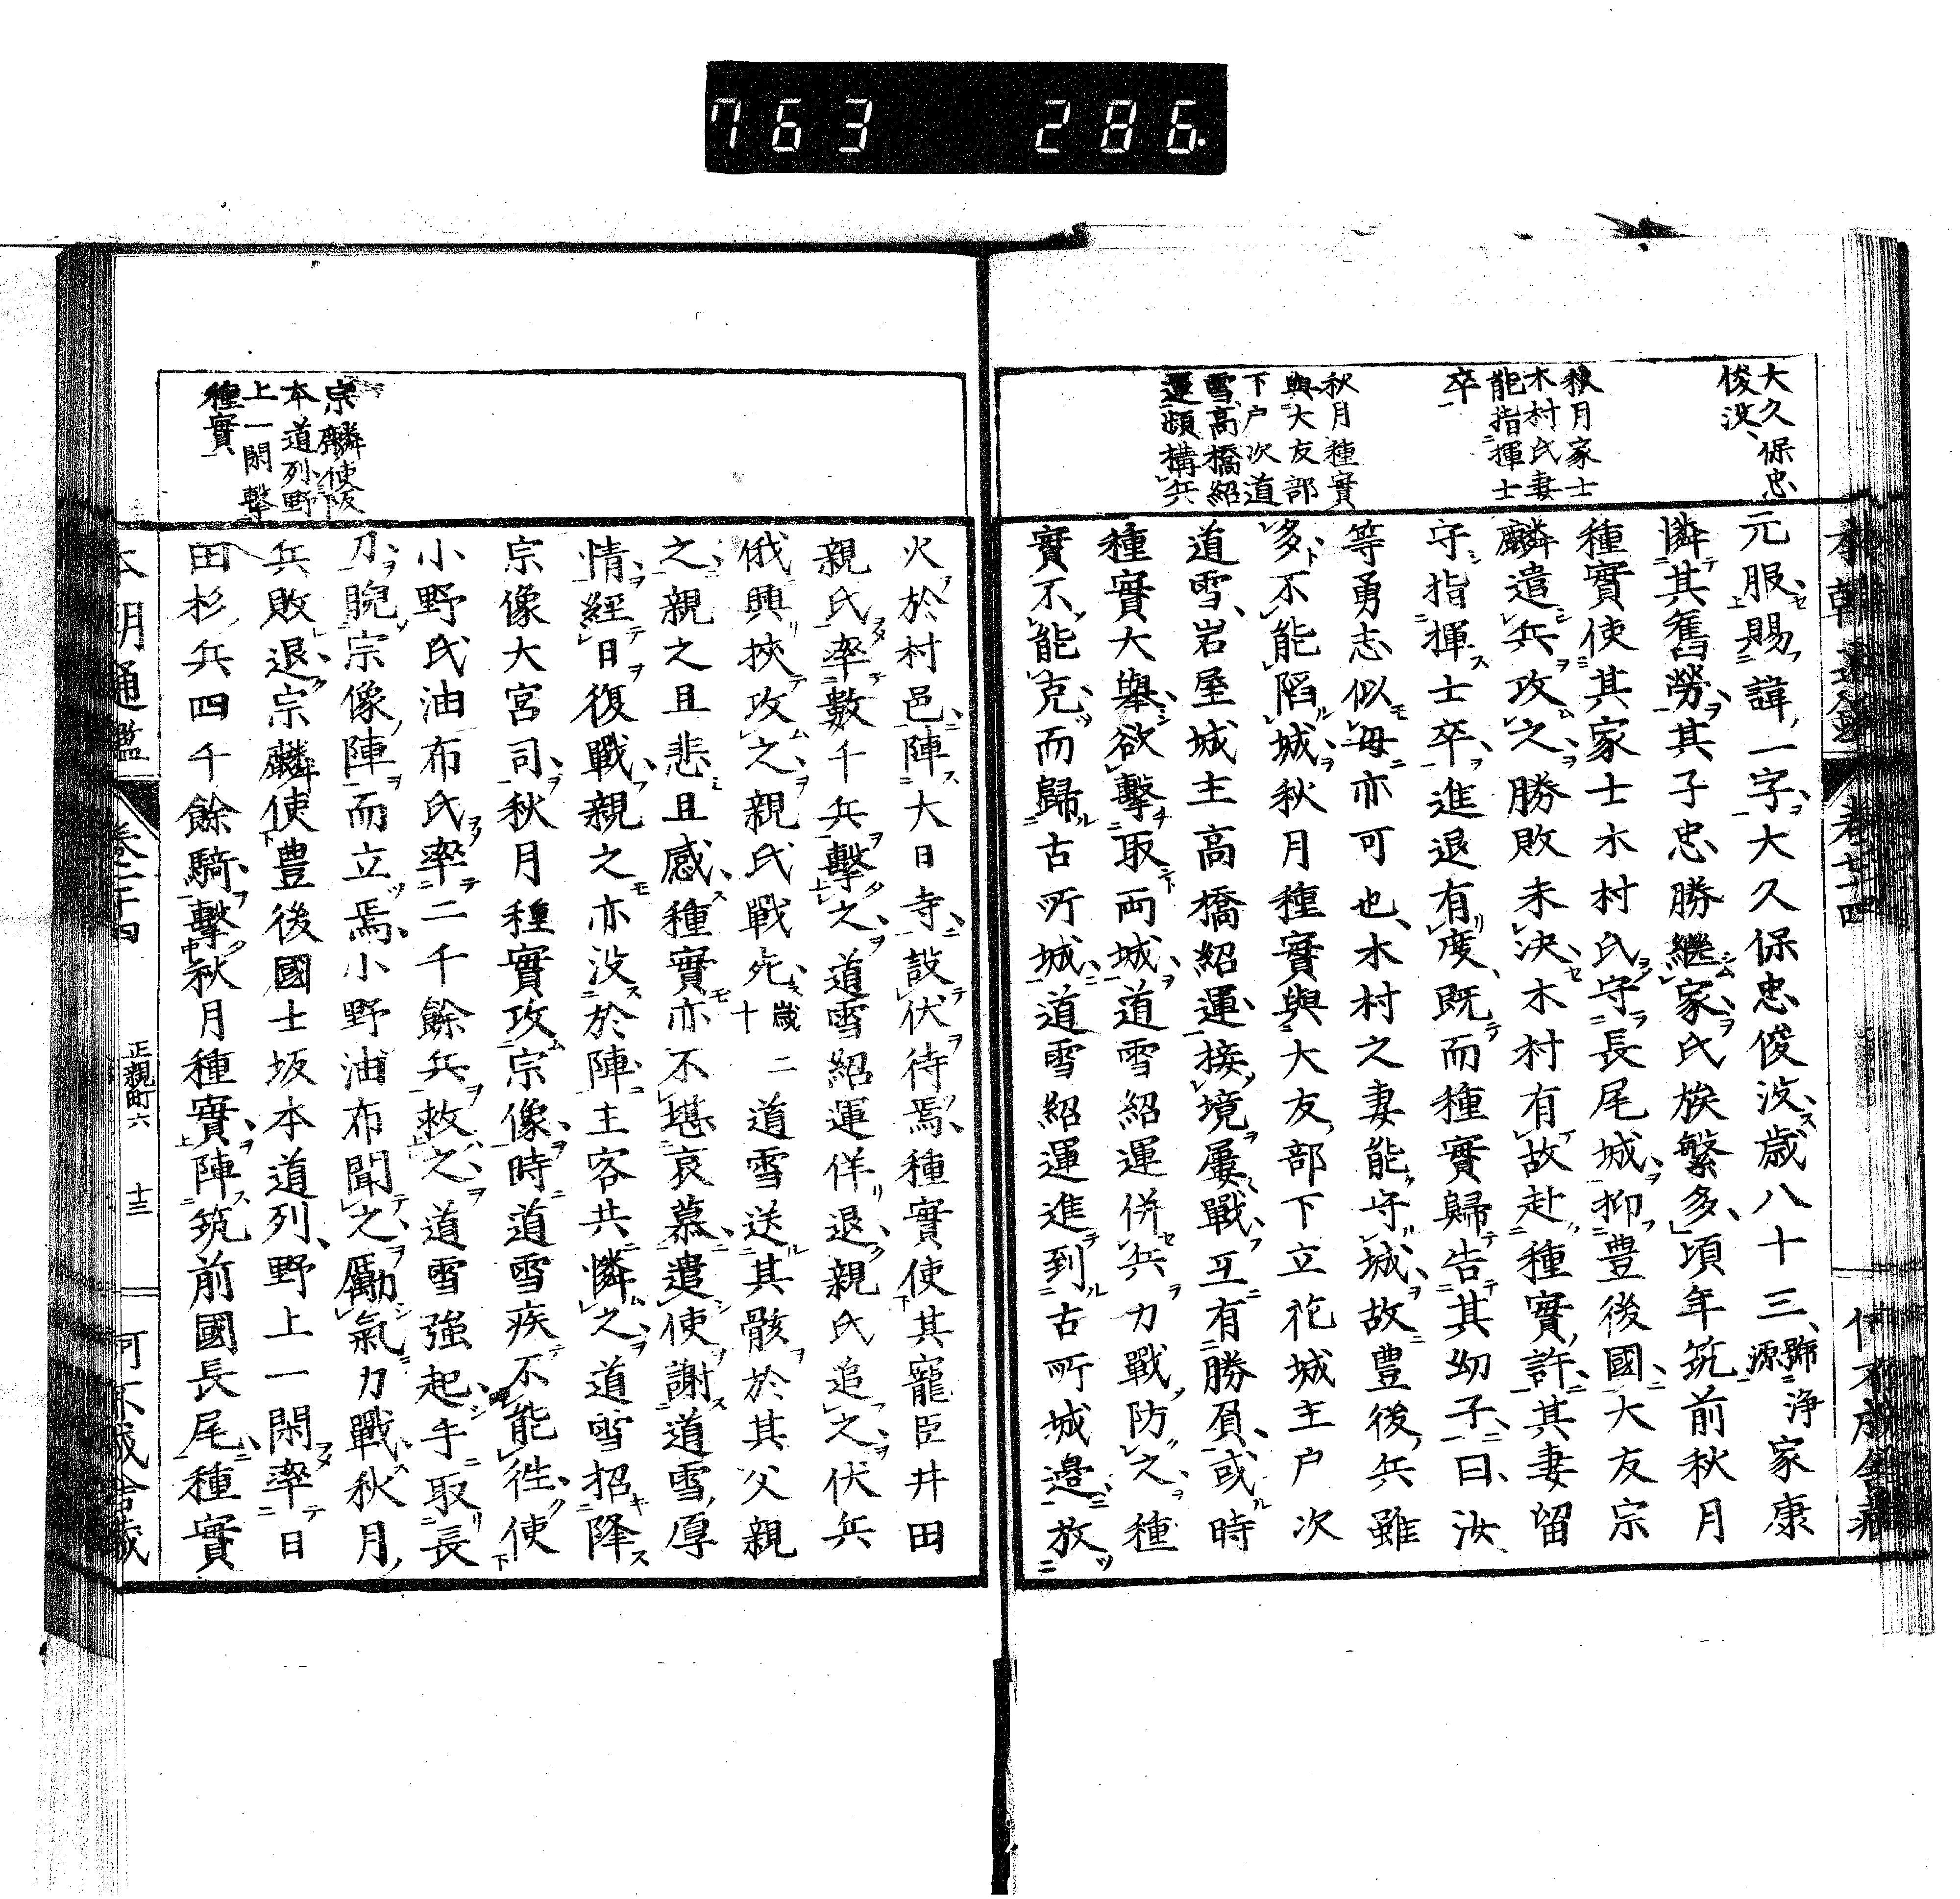 763 286
大久保忠
俊没
秋月家士
木村氏妻
能指揮士
卒
秋月種實
與大友部
下戸次道
雪高橋紹
運頻構兵
元服賜諱一字大久保忠俊没歳八十三號浄源家康
憐其舊勞其子忠勝継家氏族繁多頃年筑前秋月
種實使其家士木村氏守長尾城抑豊後國大友宗
麟遣兵攻之勝敗未決木村有故赴種實許其妻留
守指揮士卒進退有度既而種實歸告其幼子曰汝
等勇志似母亦可也木村之妻能守城故豊後兵雖
多不能陷城秋月種實與大友部下立花城主戸次
道雪岩屋城主高橋紹運接境屢戰互有勝負或時
種實大舉欲擊取両城道雪紹運併兵力戰防之種
實不能克而歸古所城道雪紹運進到古所城邉放
宗麟使坂
本道列野
上一閑擊
種實
火於村邑陣大日寺設伏待焉種實使其寵臣井田
親氏率數千兵擊之道雪紹運佯退親氏追之伏兵
俄興挾攻之親氏戰死歳二十道雪送其骸於其父親
之親之且悲且感種實亦不堪哀慕遣使謝道雪厚
情経日復戰親之亦没於陣主客共憐之道雪招降
宗像大宮司秋月種實攻宗像時道雪疾不能徃使
小野氏油布氏率二千餘兵救之道雪強起手取長
刀睨宗像陣而立焉小野油布聞之勵氣力戰秋月
兵敗退宗麟使豊後國士坂本道列野上一閑率日
田杉兵四千餘騎擊秋月種實陣筑前國長尾種實
本朝通鑑 巻二十四 正親町六 十三